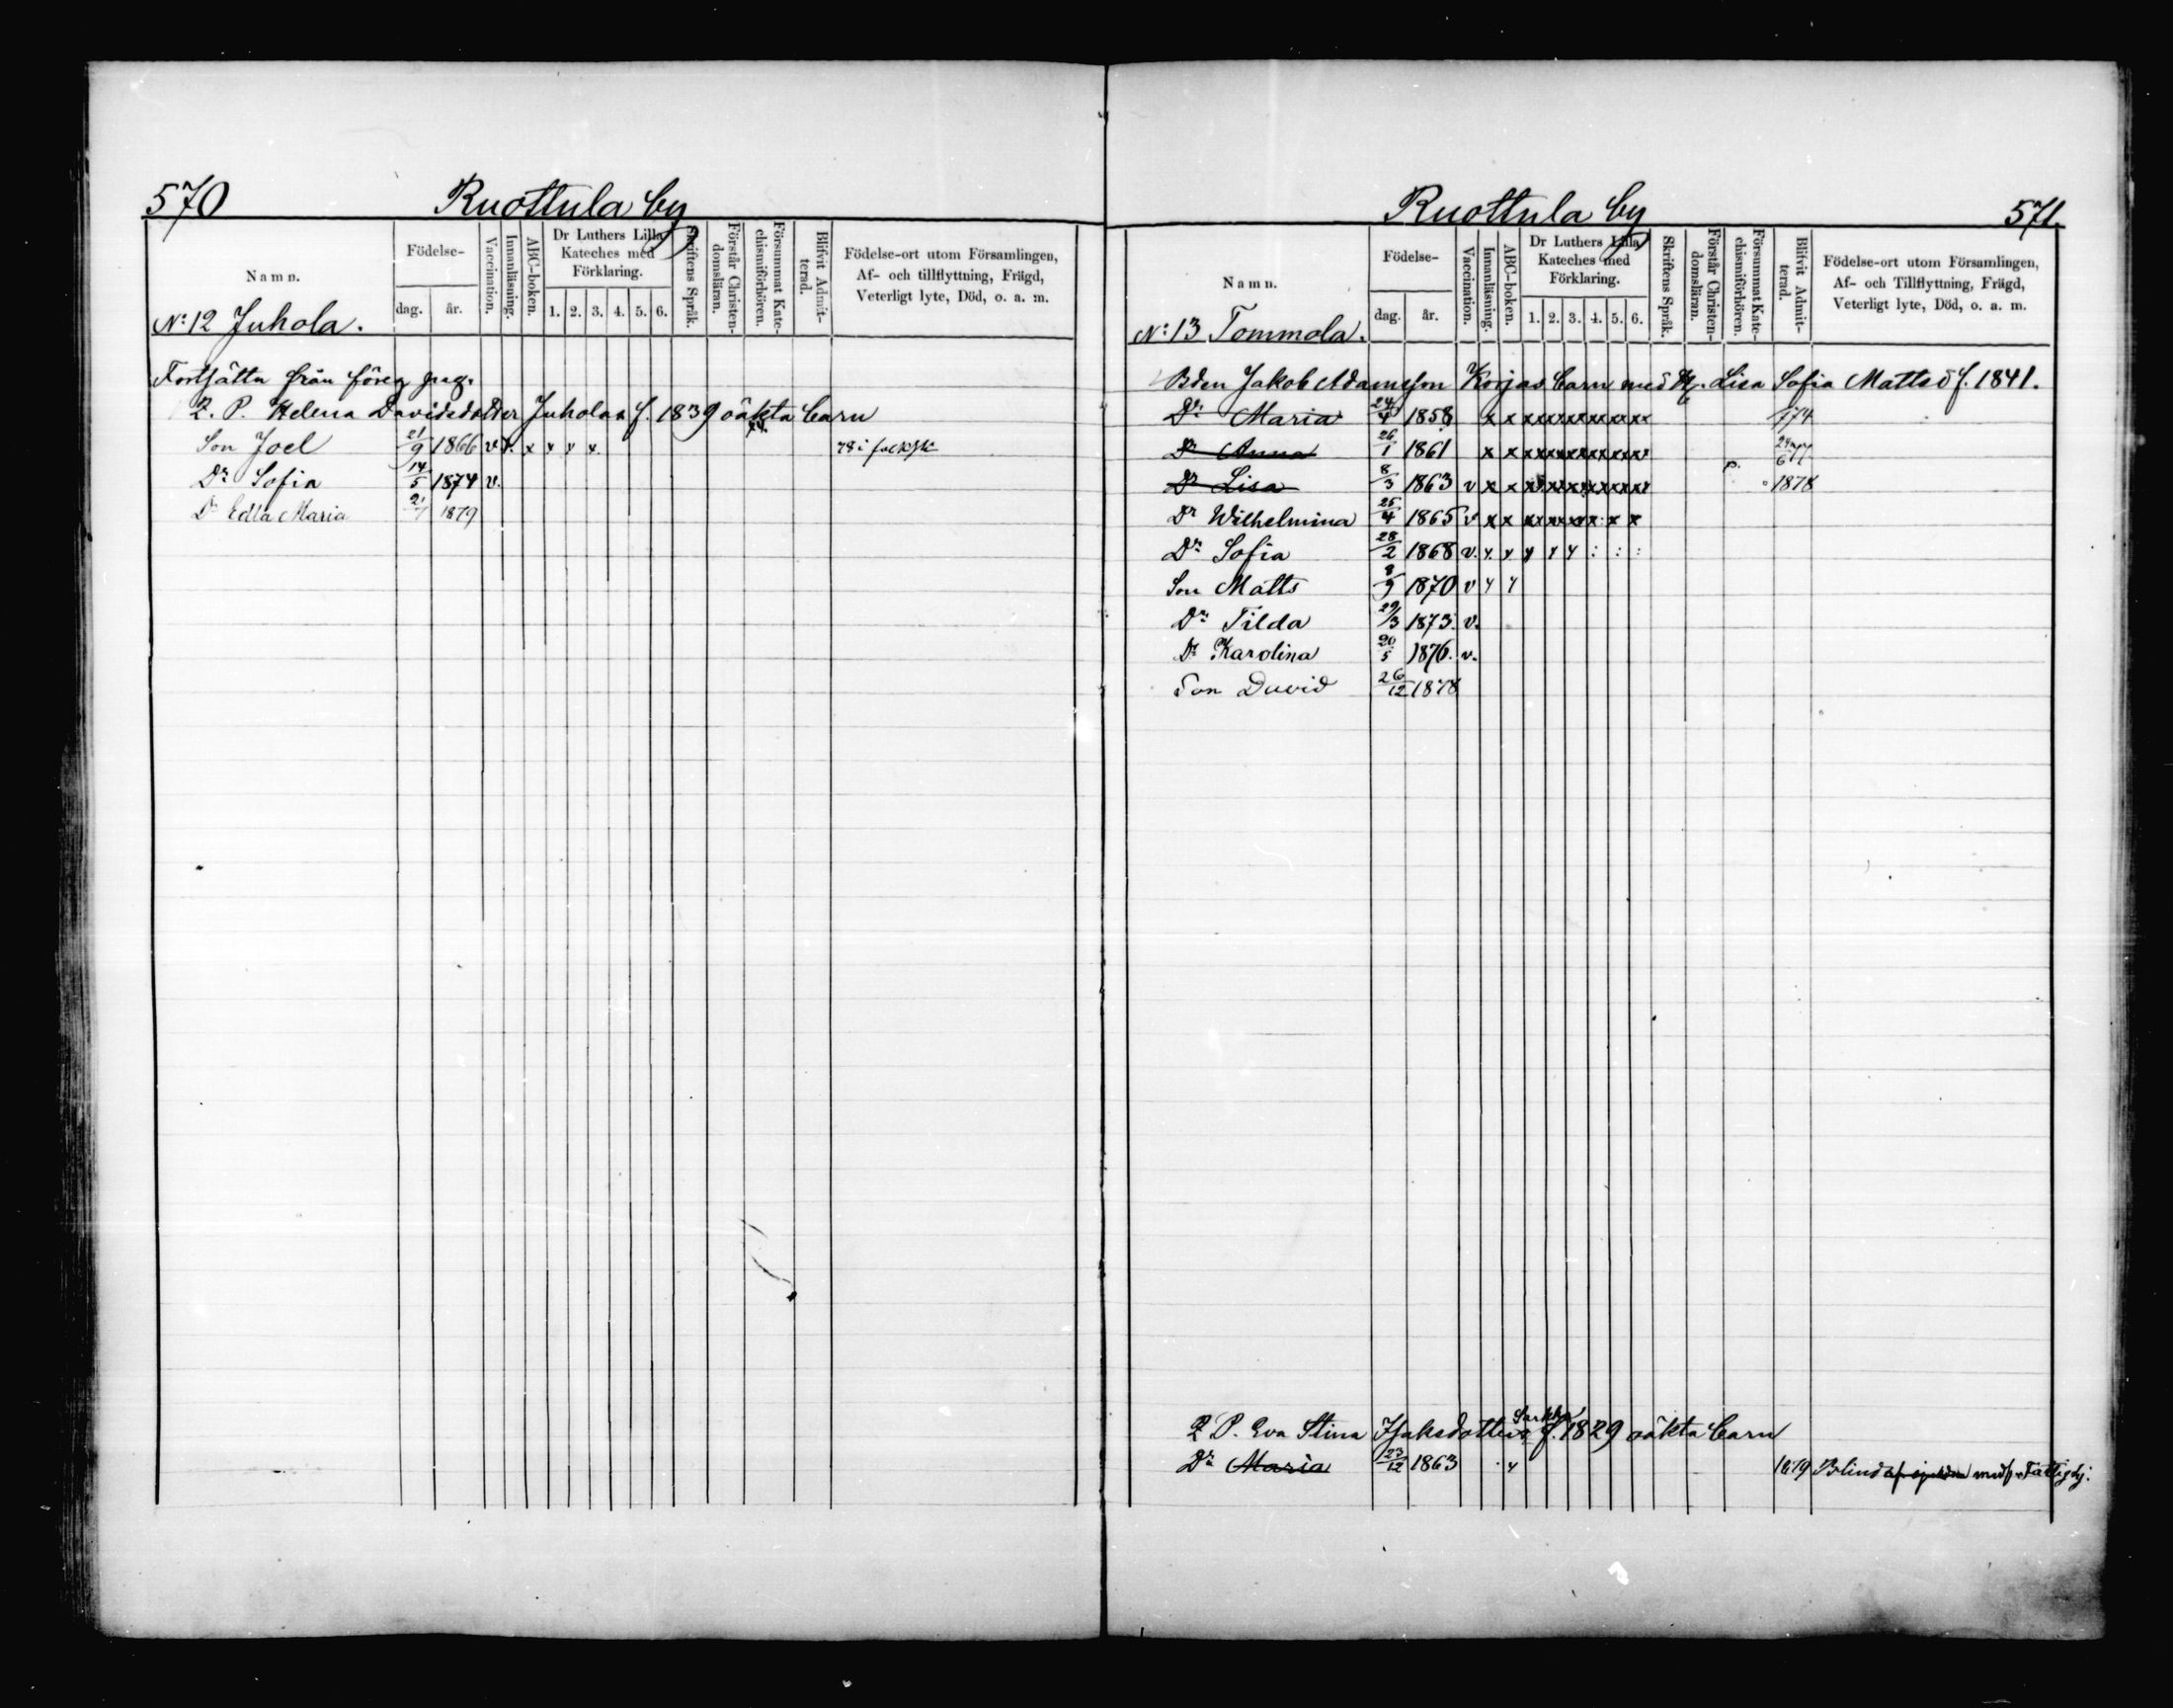 570 Ruottula by
Namn. Födelse- dag. år. Vaccination. Innanläsning. ABC-boken. Dr Luthers Lilla Kateches med Förklaring. 1. 2. 3. 4. 5. 6. Skriftens Språk. Förstår Christendomsläran. Försummat Katechismiförhören. Blifvit Admitterad. Födelse-ort utom Församlingen, Af- och tillflyttning, Frägd, Veterligt lyte, Död, o. a. m.
No: 12 Juhola.
Fortsättn från föreg pag.
Q. P. Helena Davidsdotter Juholas f. 1839 oäkta barn
Son Joel 21/9 1866 v x. x x y x 78 i
Dr Sofia 14/5 1874 v.
Dr Edla Maria 21/7 1879
Ruottula by 571.
Namn. Födelse- dag. år. Vaccination. Innanläsning. ABC-boken. Dr Luthers Lilla Kateches med Förklaring. 1. 2. 3. 4. 5. 6. Skriftens Språk. Förstår Christendomsläran. Försummat Katechismiförhören. Blifvit Admitterad. Födelse-ort utom Församlingen, Af- och Tillflyttning, Frägd, Veterligt lyte, Död, o. a. m.
No: 13 Tommola.
Bden Jakob Adamsson Korjas barn med H. Lisa Sofia Mattsd f. 1841.
Dr Maria 24/4 1858 x x xxxxxxxxxxxx 174
Dr Anna 26/1 1861 x x xxxxxxxxxxxx
Dr Lisa 8/3 1863 v x x xxxxxxxxxxxx 1878
Dr Wilhelmina 25/4 1865 v x x xx xx xx x x x
Dr Sofia 28/2 1868 v. y y y y y : : :
Son Matts 8/9 1870 v y y
Dr Tilda 29/3 1873. v.
Dr Karolina 20/5 1876. v.
Son David 26/12 1878
Q P. Eva Stina Isaksdotters f. 1829 oäkta barn
Dr Maria 23/12 1863 y 1879 Blind